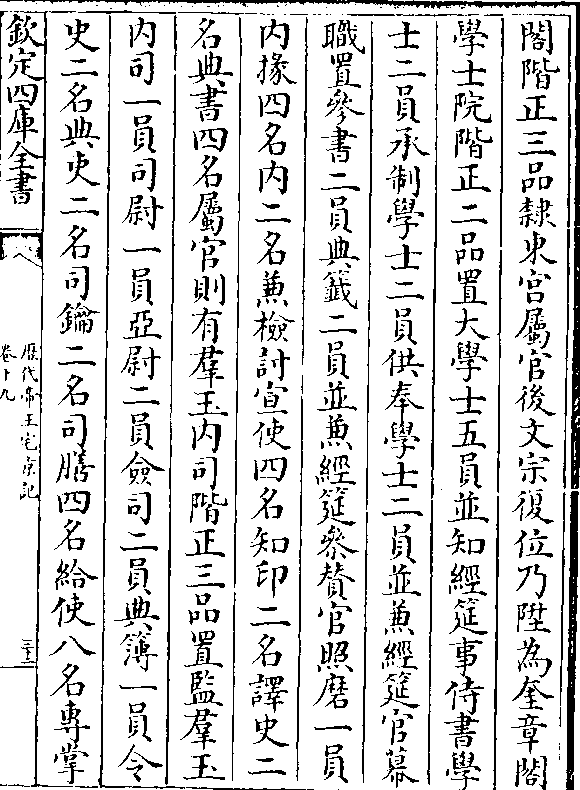 閣階正三品隸東宫屬官後文宗復位乃陞為奎章閣
學士院階正二品置大學士五員並知經筵事侍書學
士二員承制學士二員供奉學士二員並兼經筵官幕
職置參書二員典籖二員並兼經筵參賛官照磨一員
内掾四名内二名兼檢討宣使四名知印二名譯史二
名典書四名屬官則有羣玉内司階正三品置監羣玉
内司一員司尉一員亞尉二員僉司二員典簿一員令
史二名典吏二名司鑰二名司膳四名給使八名專掌
欽定四庫全書
歴代帝王宅京記
卷十九
三十二